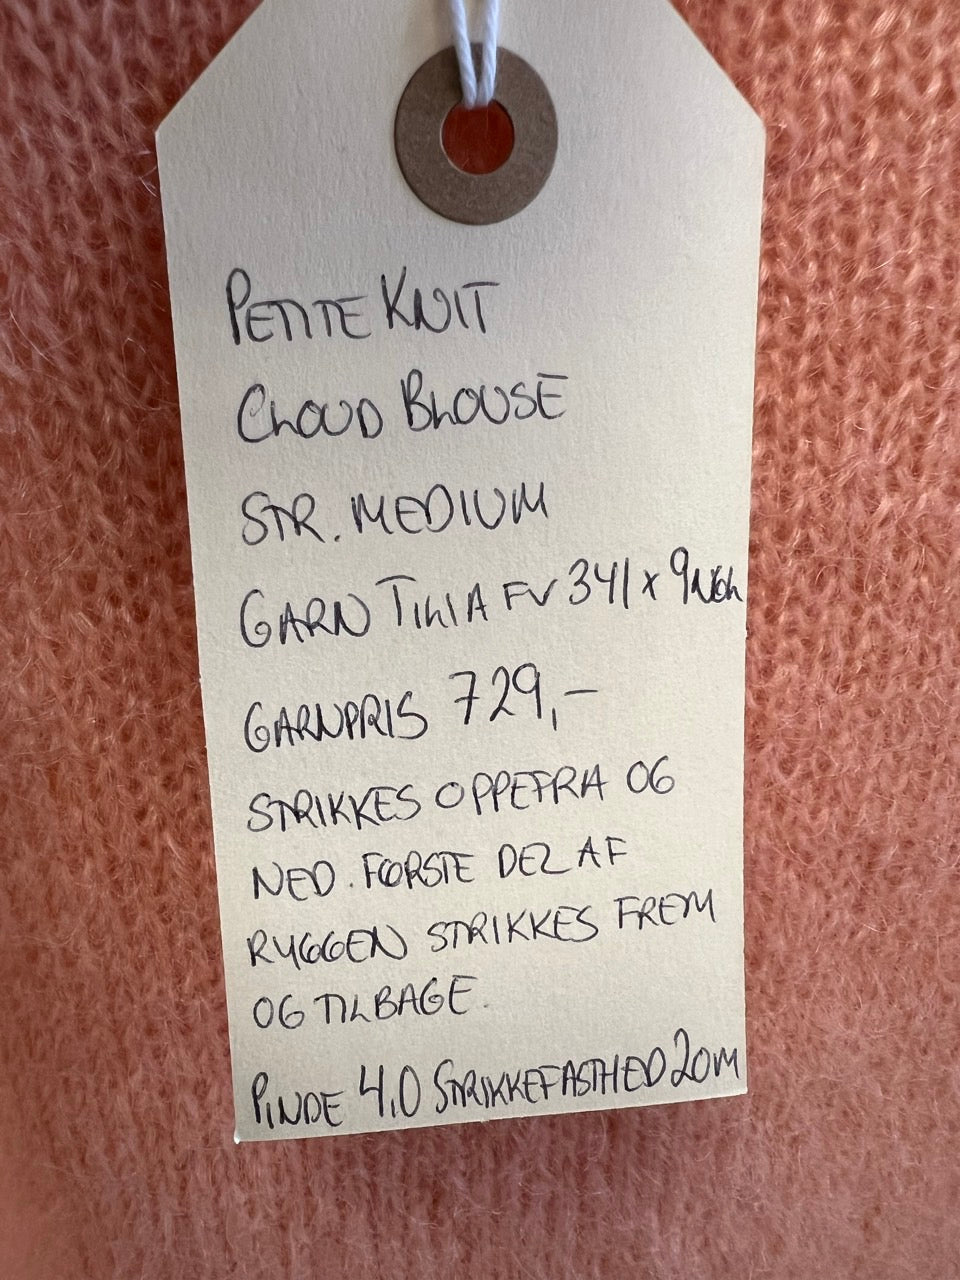 PETITE KNIT
CLOUD BLOUSE
STR. MEDIUM
GARN TILIA FV 341 x 9 NGL
GARNPRIS 729,-
STRIKKES OPPEFRA OG
NED. FØRSTE DEL AF
RYGGEN STRIKKES FREM
OG TILBAGE.
PINDE 4,0 STRIKKEFASTHED 20M